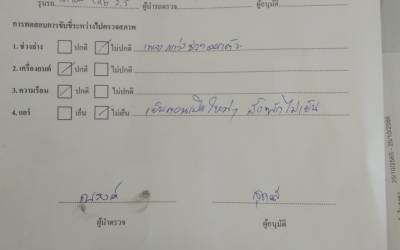 รุ่นรถ 2.5 ผู้นำรถตรวจ ผู้อนุมัติ
การทดสอบการขับขี่ระหว่างไปตรวจสภาพ
1. ช่วงล่าง ปกติ ไม่ปกติ
2. เครื่องยนต์ ปกติ ไม่ปกติ
3. ความร้อน ปกติ ไม่ปกติ
4. แอร์ เย็น ไม่เย็น เย็นตอนเปิดใหม่ๆ สักพักไม่เย็น
ณรงค์
ผู้นำตรวจ ผู้อนุมัติ
25/10/2565 - 25/10/2566